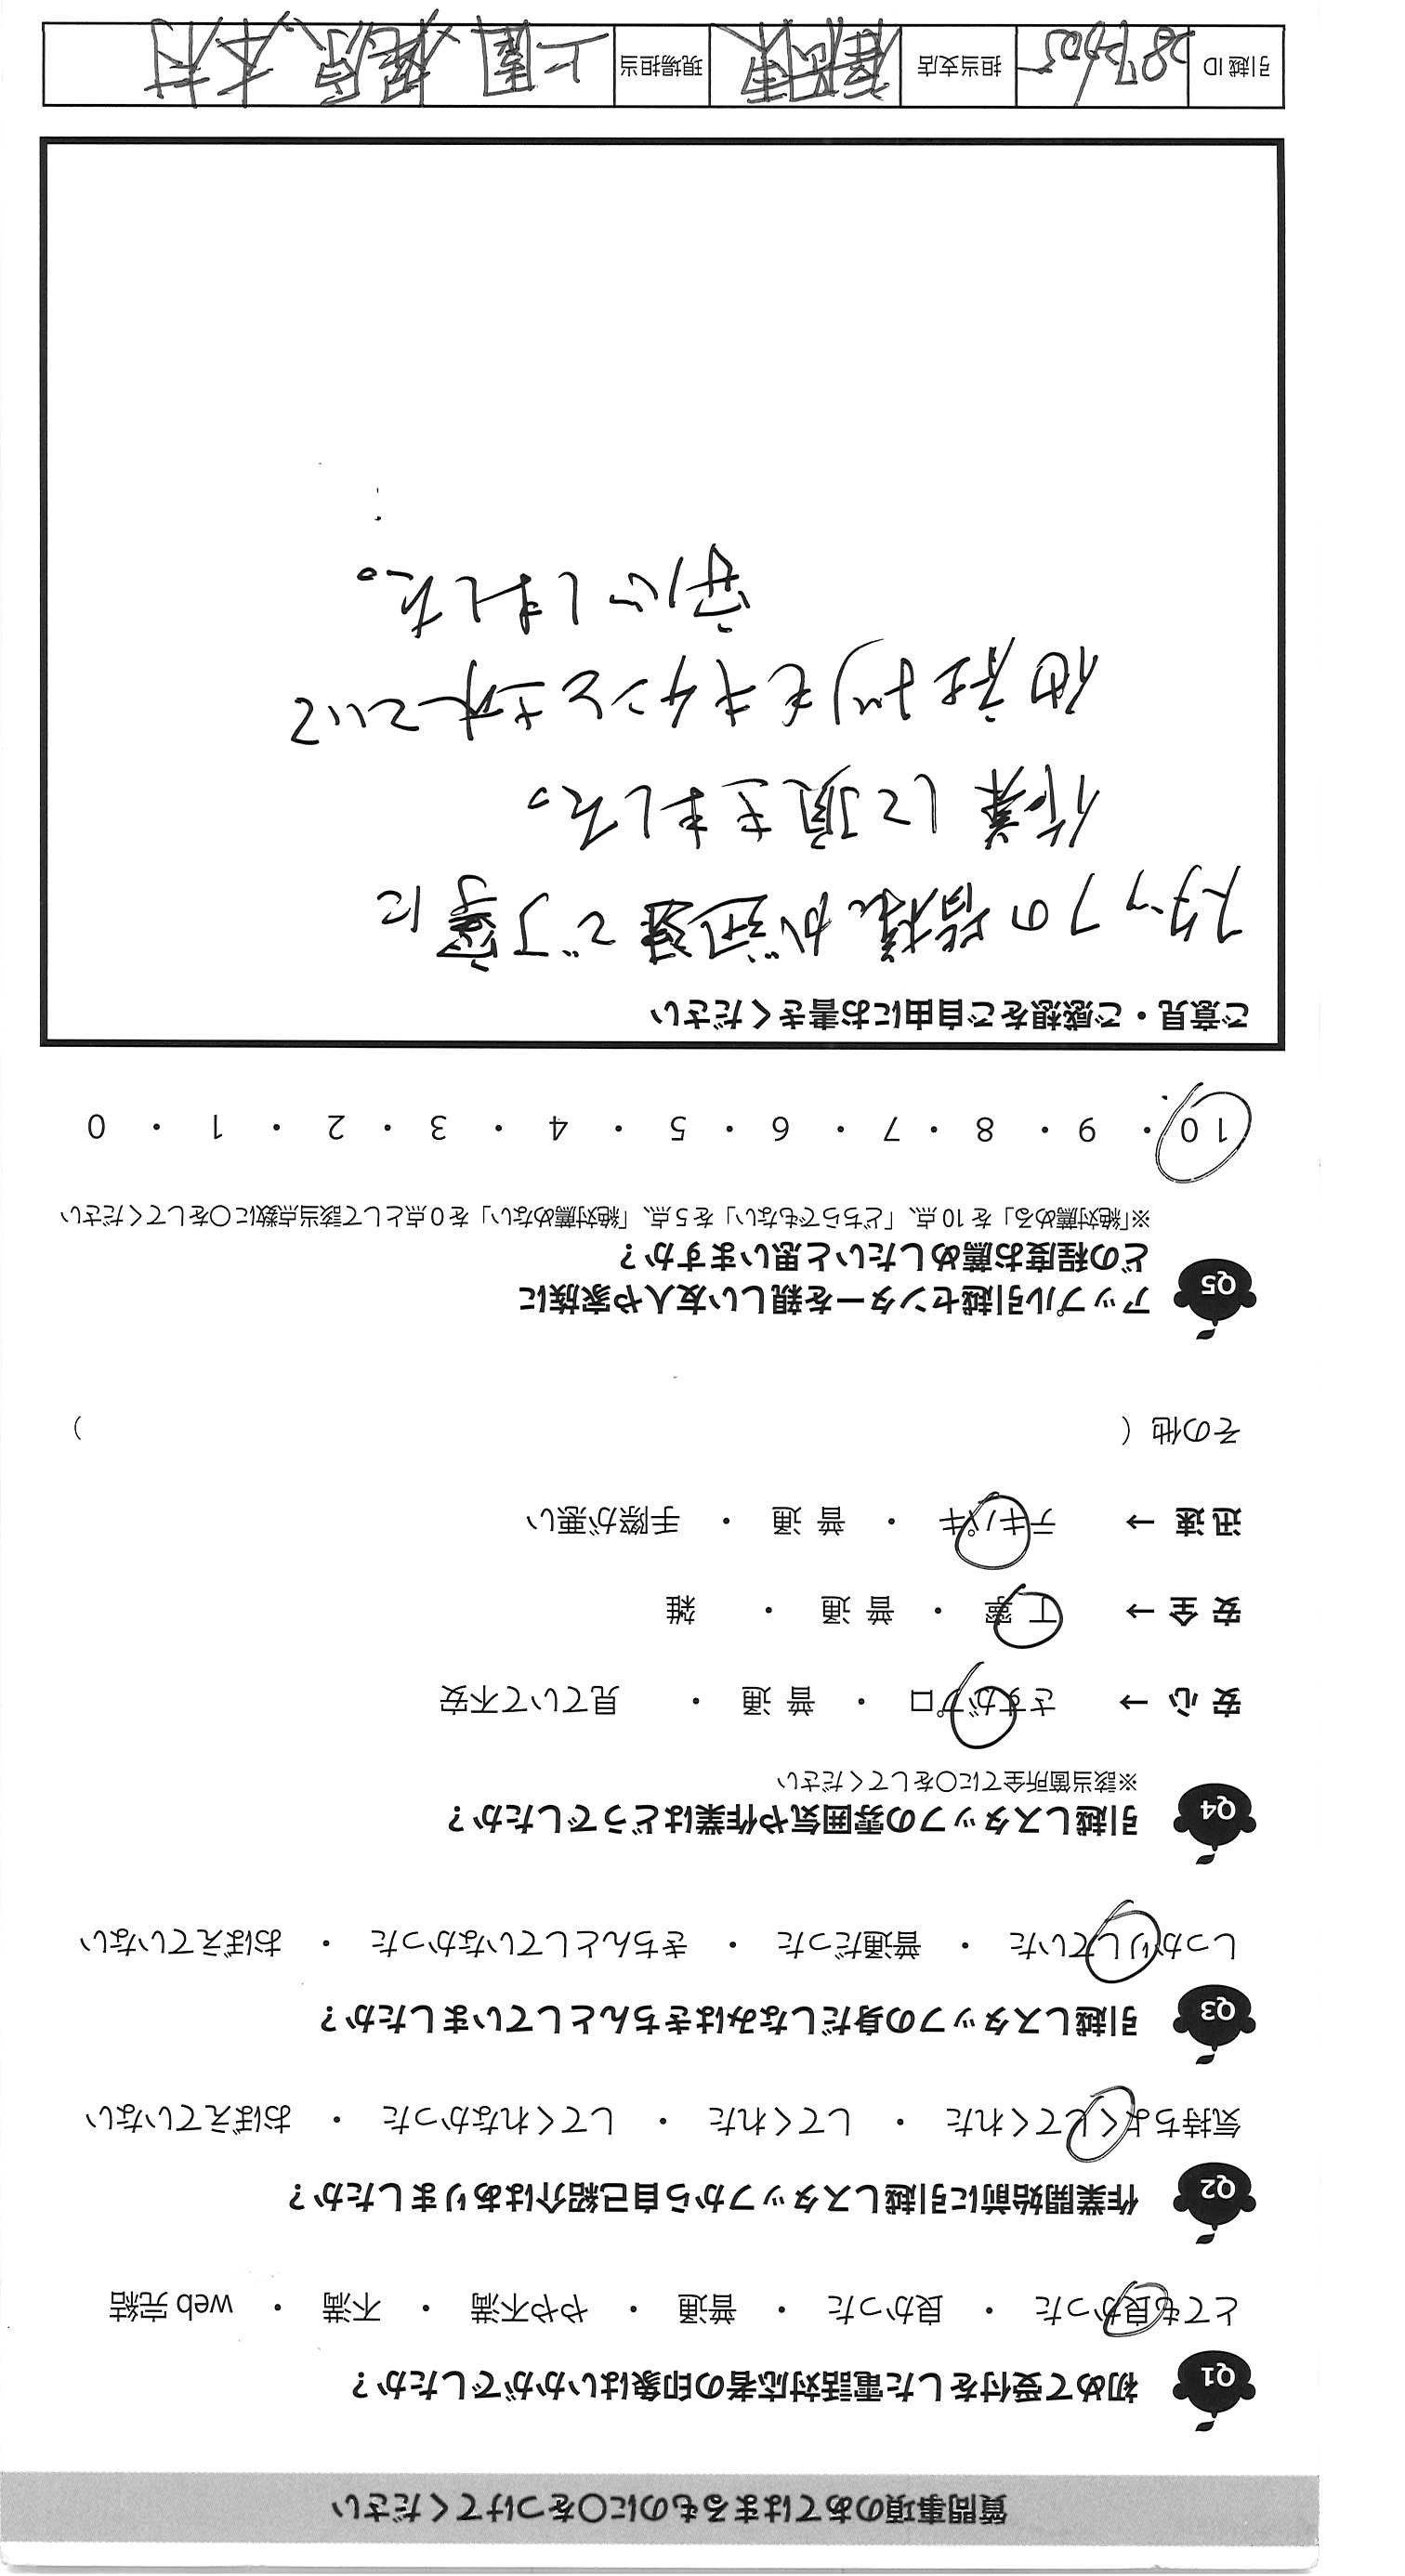 質問事項のあてはまるものに○をつけてください
Q1 初めて受付をした電話対応者の印象はいかがでしたか？
とても良かった ・ 良かった ・ 普通 ・ やや不満 ・ 不満 ・ web 完結
Q2 作業開始前に引越しスタッフから自己紹介はありましたか？
気持ちよくしてくれた ・ してくれた ・ してくれなかった ・ おぼえていない
Q3 引越しスタッフの身だしなみはきちんとしていましたか？
しっかりしていた ・ 普通だった ・ きちんとしていなかった ・ おぼえていない
Q4 引越しスタッフの雰囲気や作業はどうでしたか？
※該当箇所全てに○をしてください
安 心 → さすがプロ ・ 普 通 ・ 見ていて不安
安 全 → 丁 寧 ・ 普 通 ・ 雑
迅 速 → テキパキ ・ 普 通 ・ 手際が悪い
その他（ ）
Q5 アップル引越センターを親しい友人や家族に
どの程度お薦めしたいと思いますか？
※「絶対薦める」を 10 点、「どちらでもない」を 5 点、「絶対薦めない」を 0 点として該当点数に○をしてください
10 ・ 9 ・ 8 ・ 7 ・ 6 ・ 5 ・ 4 ・ 3 ・ 2 ・ 1 ・ 0
ご意見・ご感想をご自由にお書きください
スタッフの皆様が迅速で丁寧に
作業して頂きました。
他社よりもキチンとされていて
安心しました。
引越 ID 担当支店 福岡東 現場担当 上園 梶原 木村